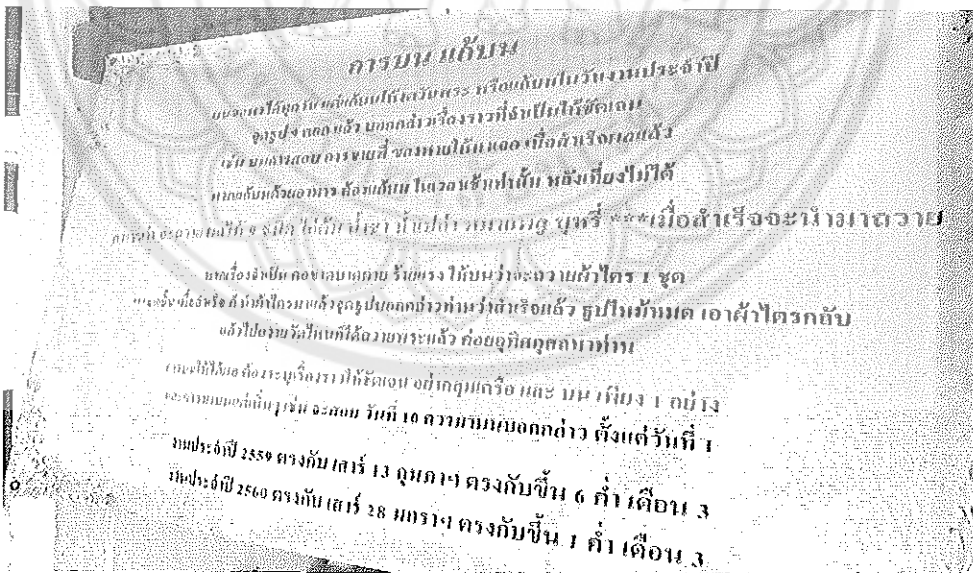 การบน แก้บน
บนตอนไหนได้ทุกวัน แต่แก้บนให้ตรงวันพระ หรือแก้บนในวันงานประจำปี
จุดรูป 9 ดอกแล้ว บอกกล่าวเรื่องราวที่จำเป็นให้ชัดเจน
เช่น บนการสอบ การขายที่ ของหายให้เจอ เมื่อสำเร็จผลแล้ว
หากแก้บนด้วยอาหาร ต้องแก้บน ในเวลาเช้าเท่านั้น หลังเที่ยงไม่ได้
จะถวายผลไม้ 9 ชนิด ไข่ต้ม น้ำชา น้ำเปล่า หมากพลู บุหรี่ ***เมื่อสำเร็จจะนำมาถวาย
หากเรื่องจำเป็น คอขาดบาดตาย ร้ายแรง ให้บนว่าจะถวายผ้าไตร 1 ชุด
ครั้นเมื่อสำเร็จ ก็นำผ้าไตรมาแล้วจุดรูปบอกกล่าวท่านว่าสำเร็จแล้ว ธูปไหม้หมด เอาผ้าไตรกลับ
แล้วไปถวายวัดไหนก็ได้ถวายพระแล้ว ค่อยอุทิศกุศลมาท่าน
บนให้ได้ผล ต้องระบุเรื่องราวให้ชัดเจน อย่าคลุมเครือ และ บนเพียง 1 อย่าง
และควรบนแต่เนิ่นๆ เช่น จะสอบ วันที่ 10 ควรมาบนบอกกล่าว ตั้งแต่วันที่ 1
งานประจำปี 2559 ตรงกับ เสาร์ 13 กุมภาฯ ตรงกับขึ้น 6 ค่ำ เดือน 3
งานประจำปี 2560 ตรงกับ เสาร์ 28 มกราฯ ตรงกับขึ้น 1 ค่ำ เดือน 3